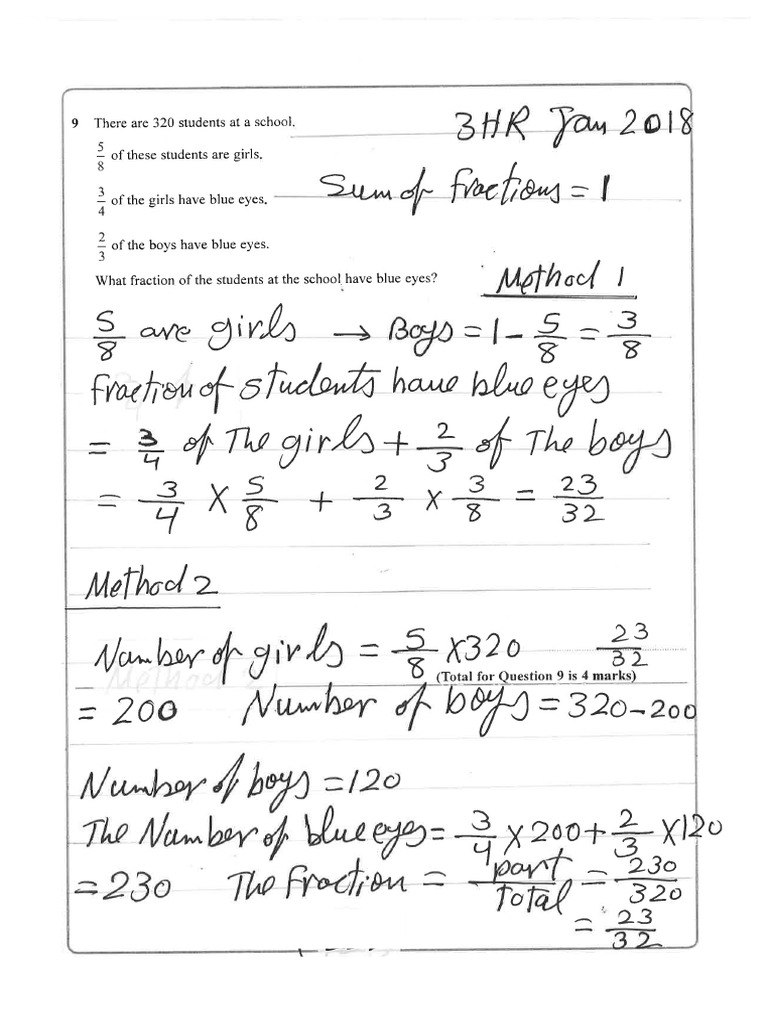 9 There are 320 students at a school.
3HR Jan 2018
5/8 of these students are girls.
Sum of fractions = 1
3/4 of the girls have blue eyes.
2/3 of the boys have blue eyes.
What fraction of the students at the school have blue eyes?
Method 1
5/8 are girls → Boys = 1 - 5/8 = 3/8
fraction of students have blue eyes
= 3/4 of The girls + 2/3 of The boys
= 3/4 × 5/8 + 2/3 × 3/8 = 23/32
Method 2
Number of girls = 5/8 × 320
23/32
(Total for Question 9 is 4 marks)
= 200 Number of boys = 320 - 200
Number of boys = 120
The Number of blue eyes = 3/4 × 200 + 2/3 × 120
= 230 The fraction = part/Total = 230/320
= 23/32